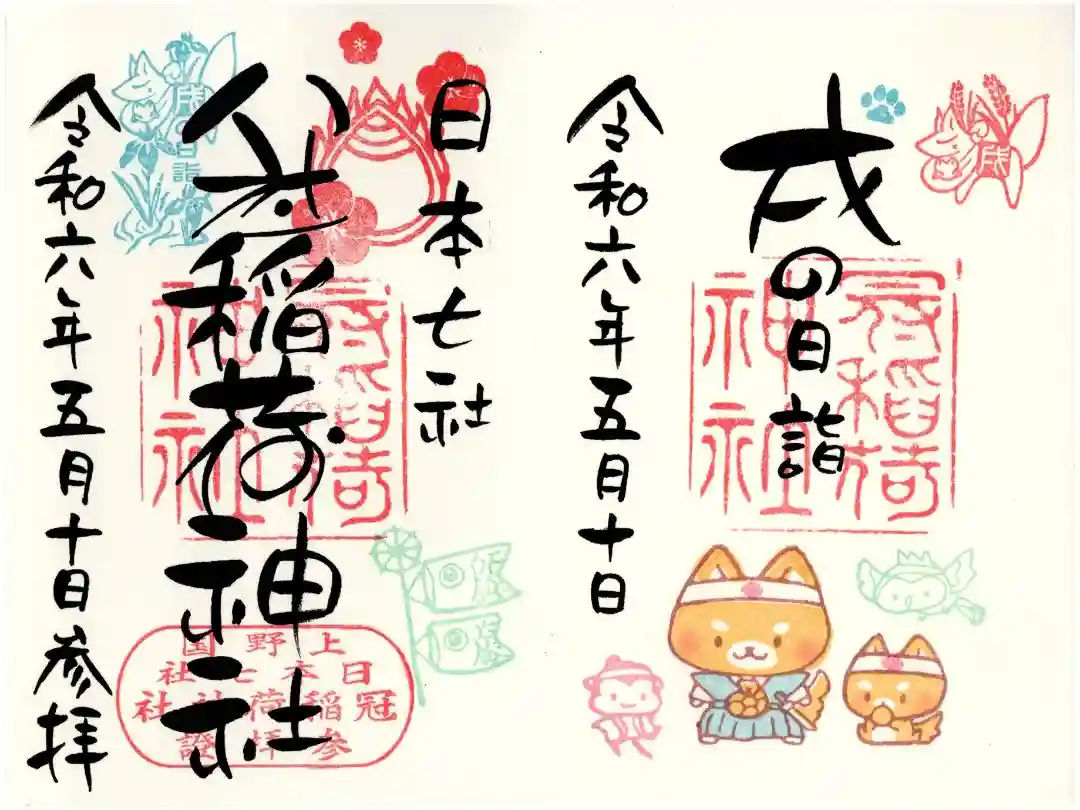 戌の日詣
戌
冠稲荷
神社
令和六年五月十日
日本七社
冠稲荷神社
冠稲荷
神社
上野国
日本七社
冠稲荷神社
参拝證
戌日詣
令和六年五月十日参拝